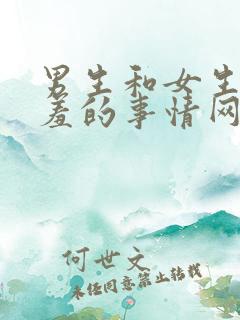 男生和女生
羞的事情网
何世文
未经同意禁止转载